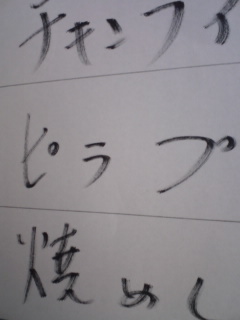 チキンライ
ピラフ
焼めし